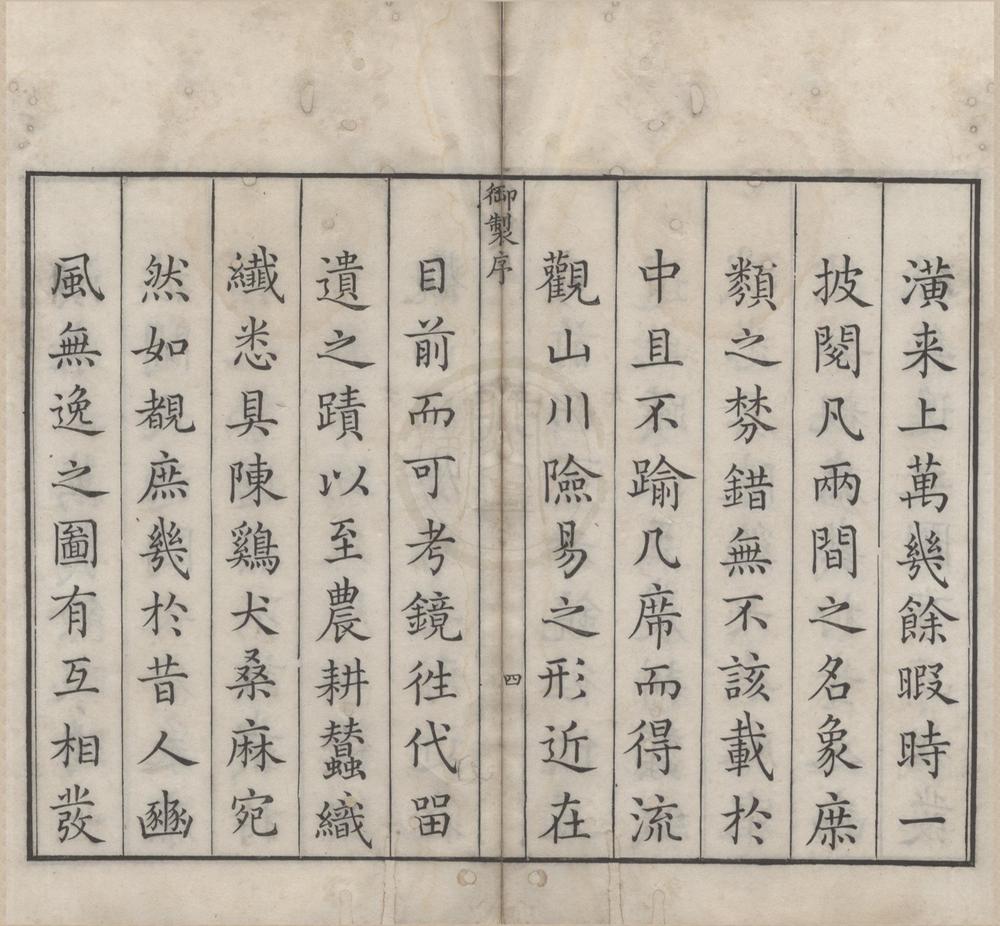 潢来上萬幾餘暇時一
披閱凡兩間之名象庶
類之棼錯無不該載於
中且不踰几席而得流
觀山川險易之形近在
御製序
四
目前而可考鏡徃代畱
遺之蹟以至農耕蠶織
纖悉具陳鷄犬桑麻宛
然如覩庶幾於昔人豳
風無逸之圖有互相發